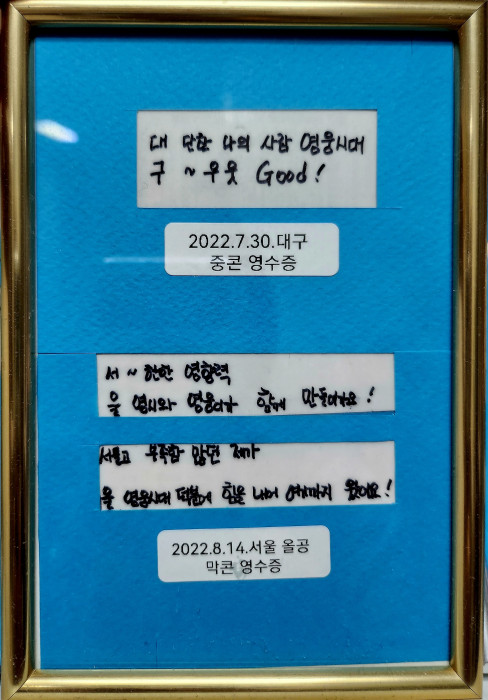 대 단한 나의 사람 영웅시대
구 ~ 우웃 Good!
2022.7.30.대구
중콘 영수증
서 ~ 한한 영향력
을 영시와 영웅이가 함께 만들어가요!
서툴고 부족함 많던 제가
울 영웅시대 덕분에 힘을 내어 여기까지 왔어요!
2022.8.14.서울 올공
막콘 영수증